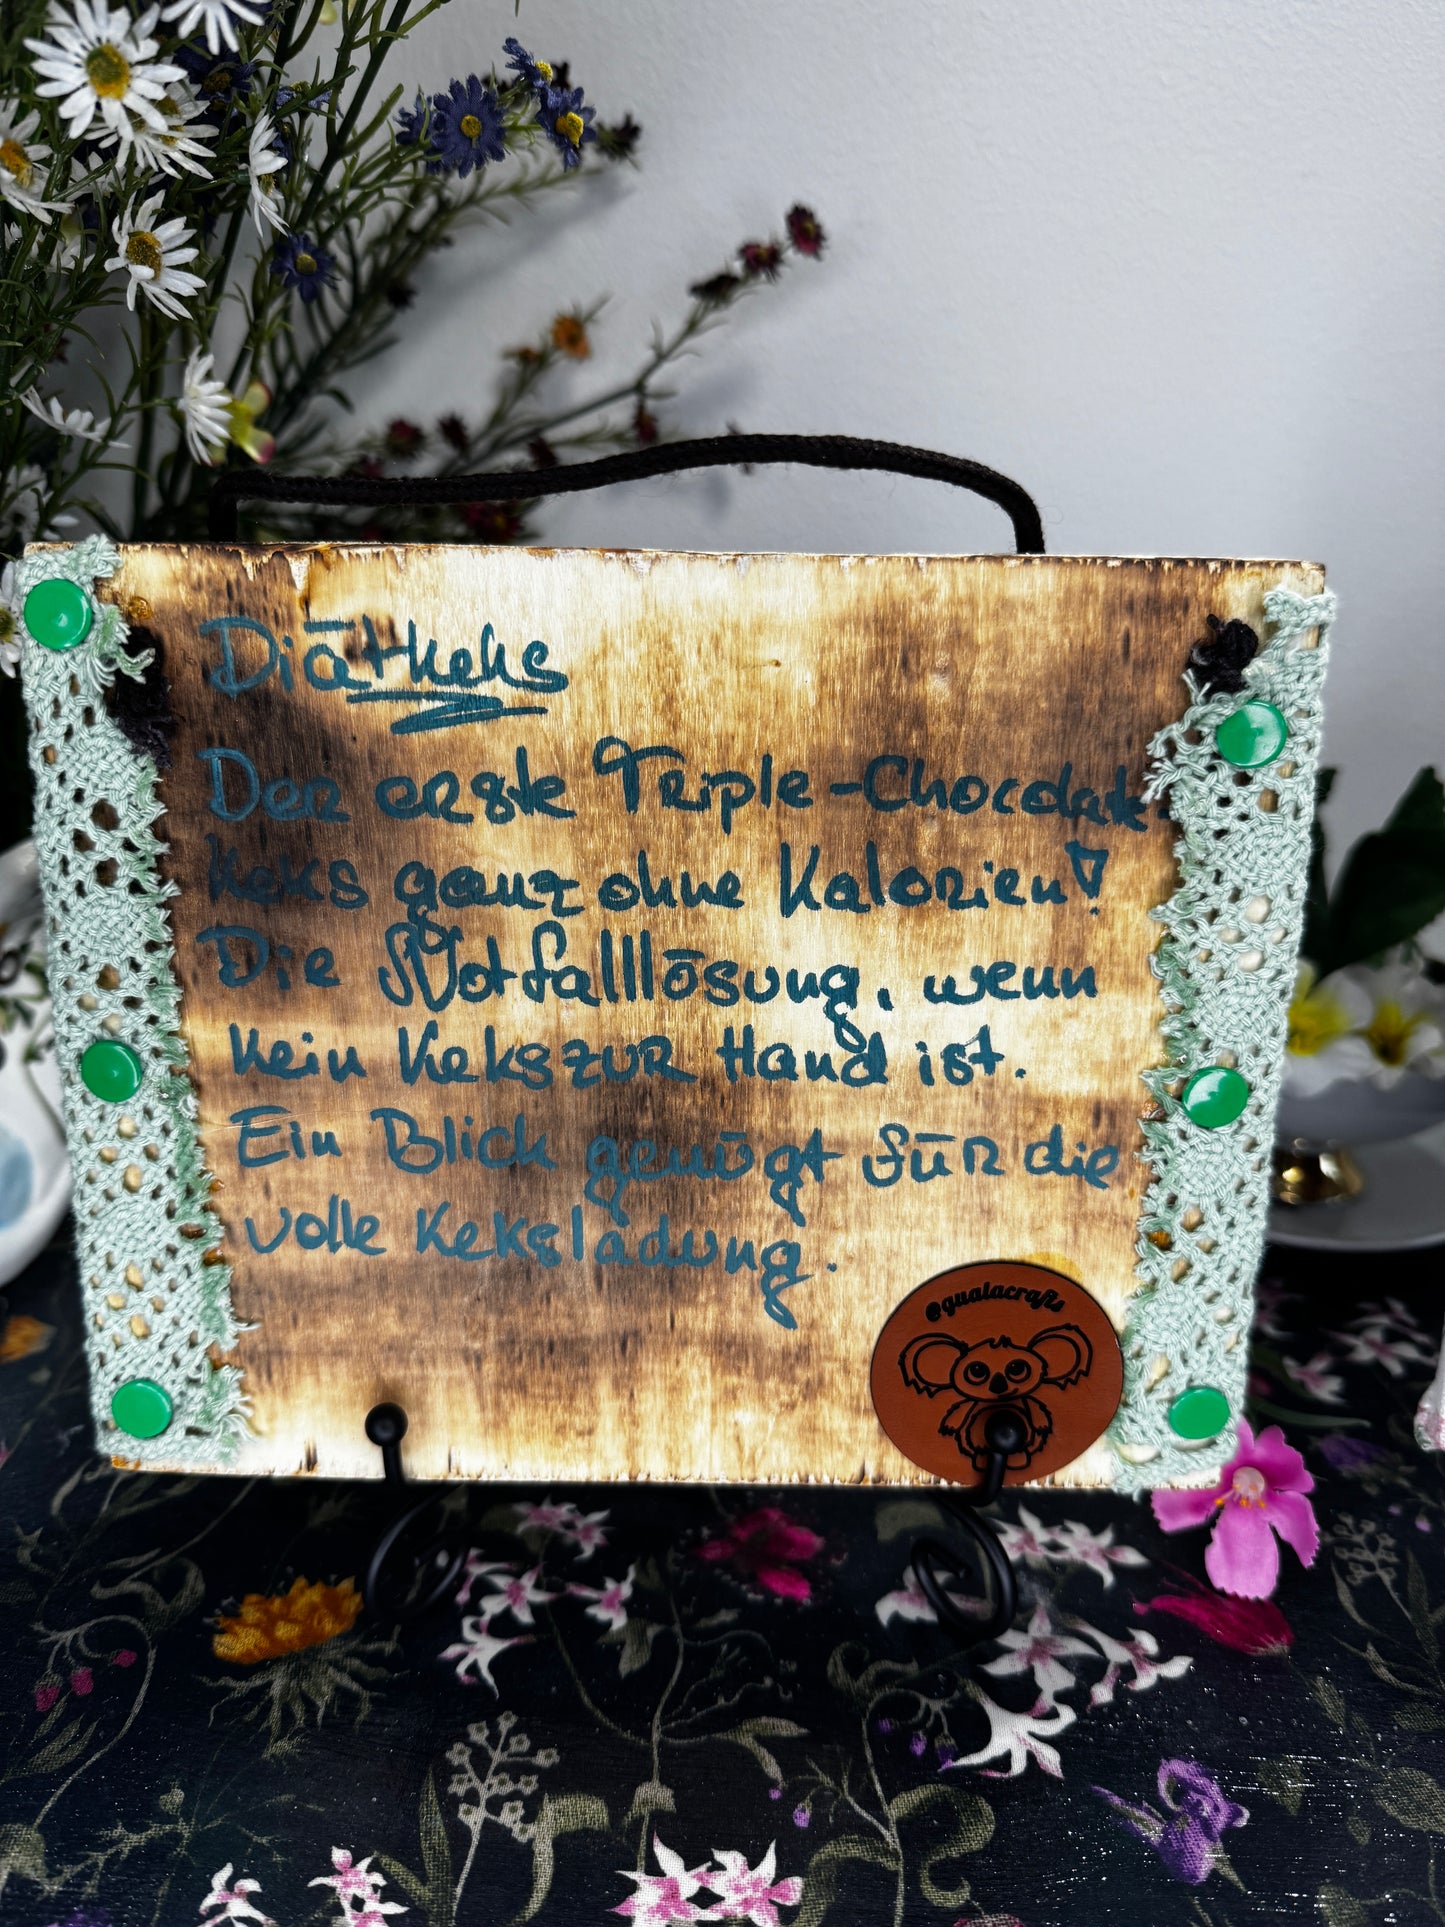 Diätkeks
Der erste Triple-Chocolate-
Keks ganz ohne Kalorien!
Die Notfalllösung, wenn
kein Keks zur Hand ist.
Ein Blick genügt für die
volle Keksladung.
@gualacrafts